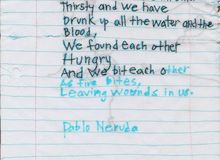 Thirsty and we have
Drunk up all the water and the
Blood,
We found each other
Hungry
And we biteach other
As fire bites,
Leaving wounds in us.
Pablo Neruda